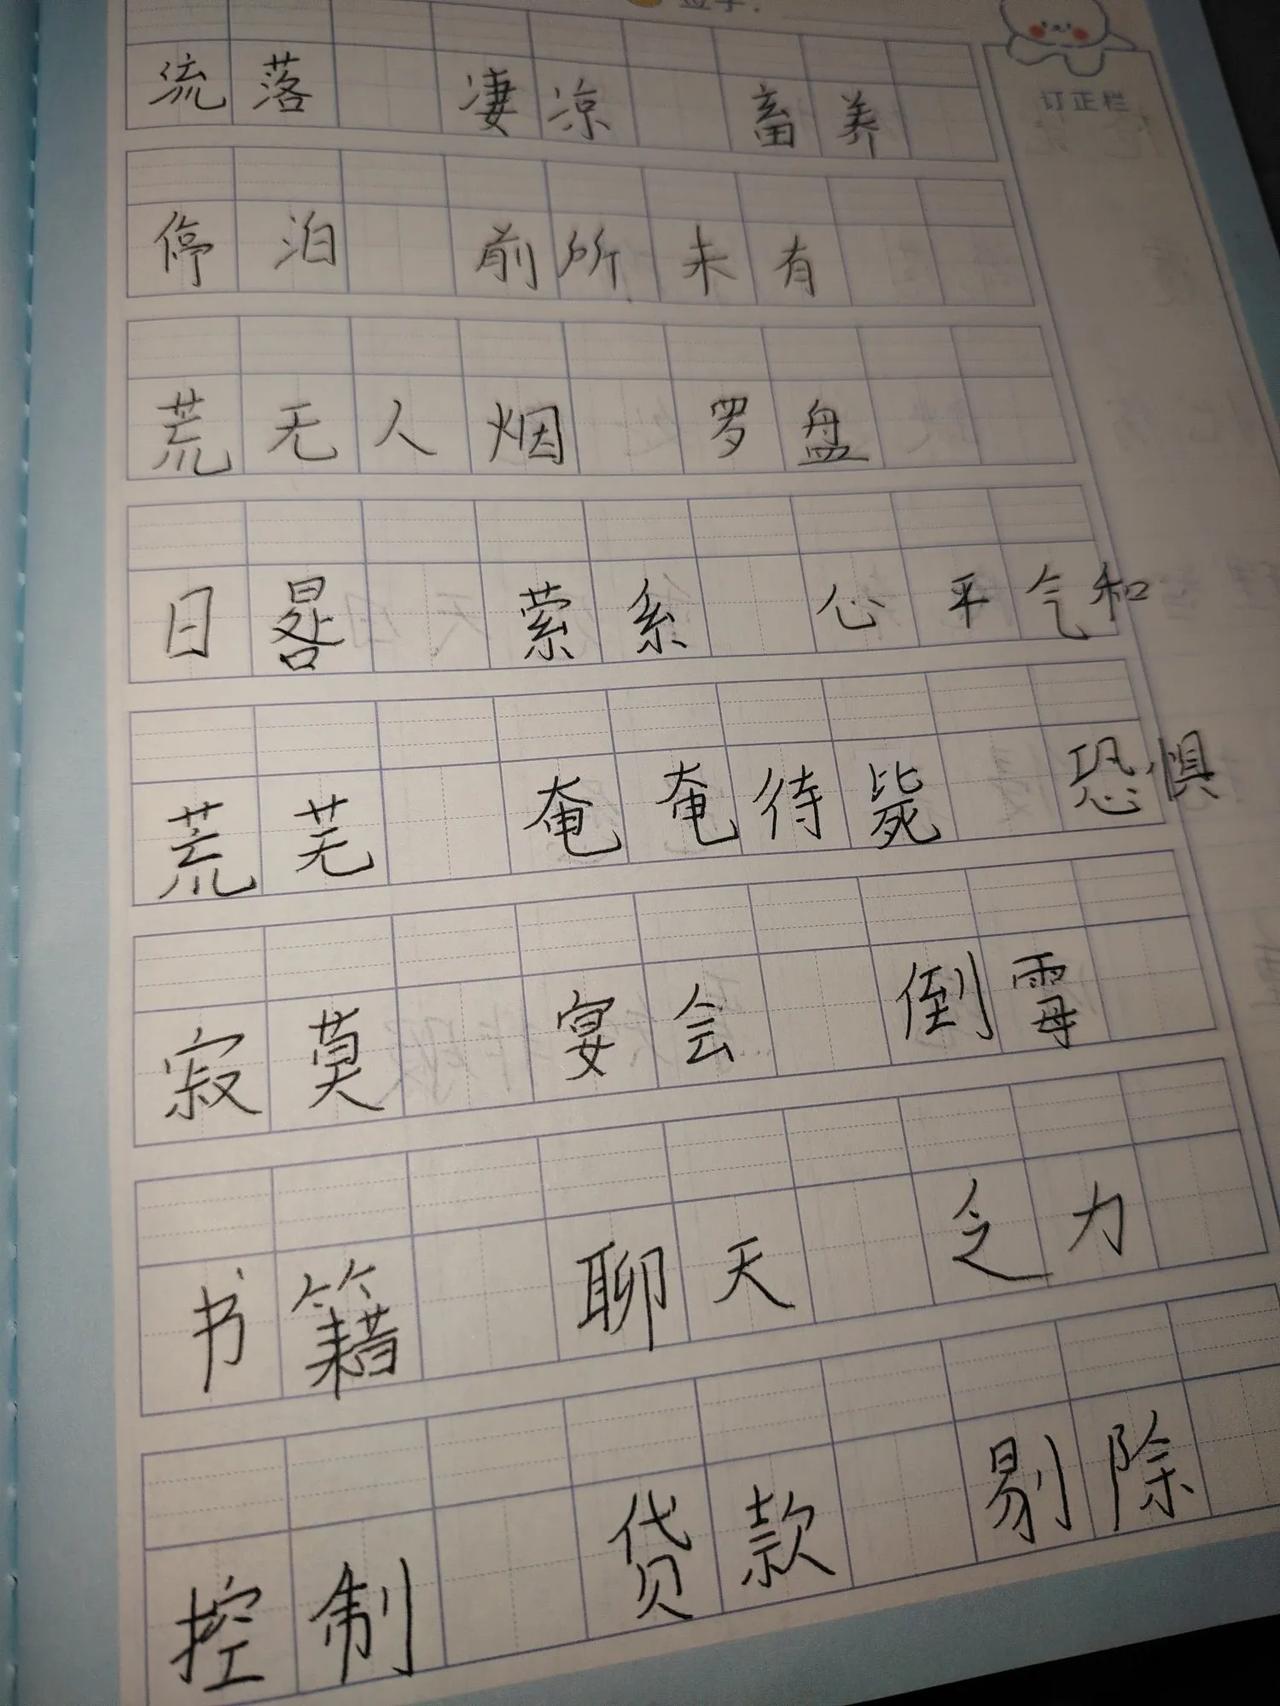 签字：
订正栏
流落 凄凉 畜养
停泊 前所未有
荒无人烟 罗盘
日晷 萦系 心平气和
荒芜 奄奄待毙 恐惧
寂寞 宴会 倒霉
书籍 聊天 乏力
控制 贷款 剔除